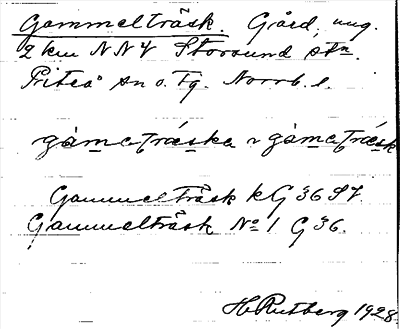 Gammelträsk. Gård, ung.
2 km NNV Storsund stn.
Piteå sn o. Tg. Norrb. l.
gàmeltrǽska ~ gàmeltrǽsk
Gammelträsk kG 36 ST.
Gammelträsk No 1 G 36.
H. Rutberg 1928